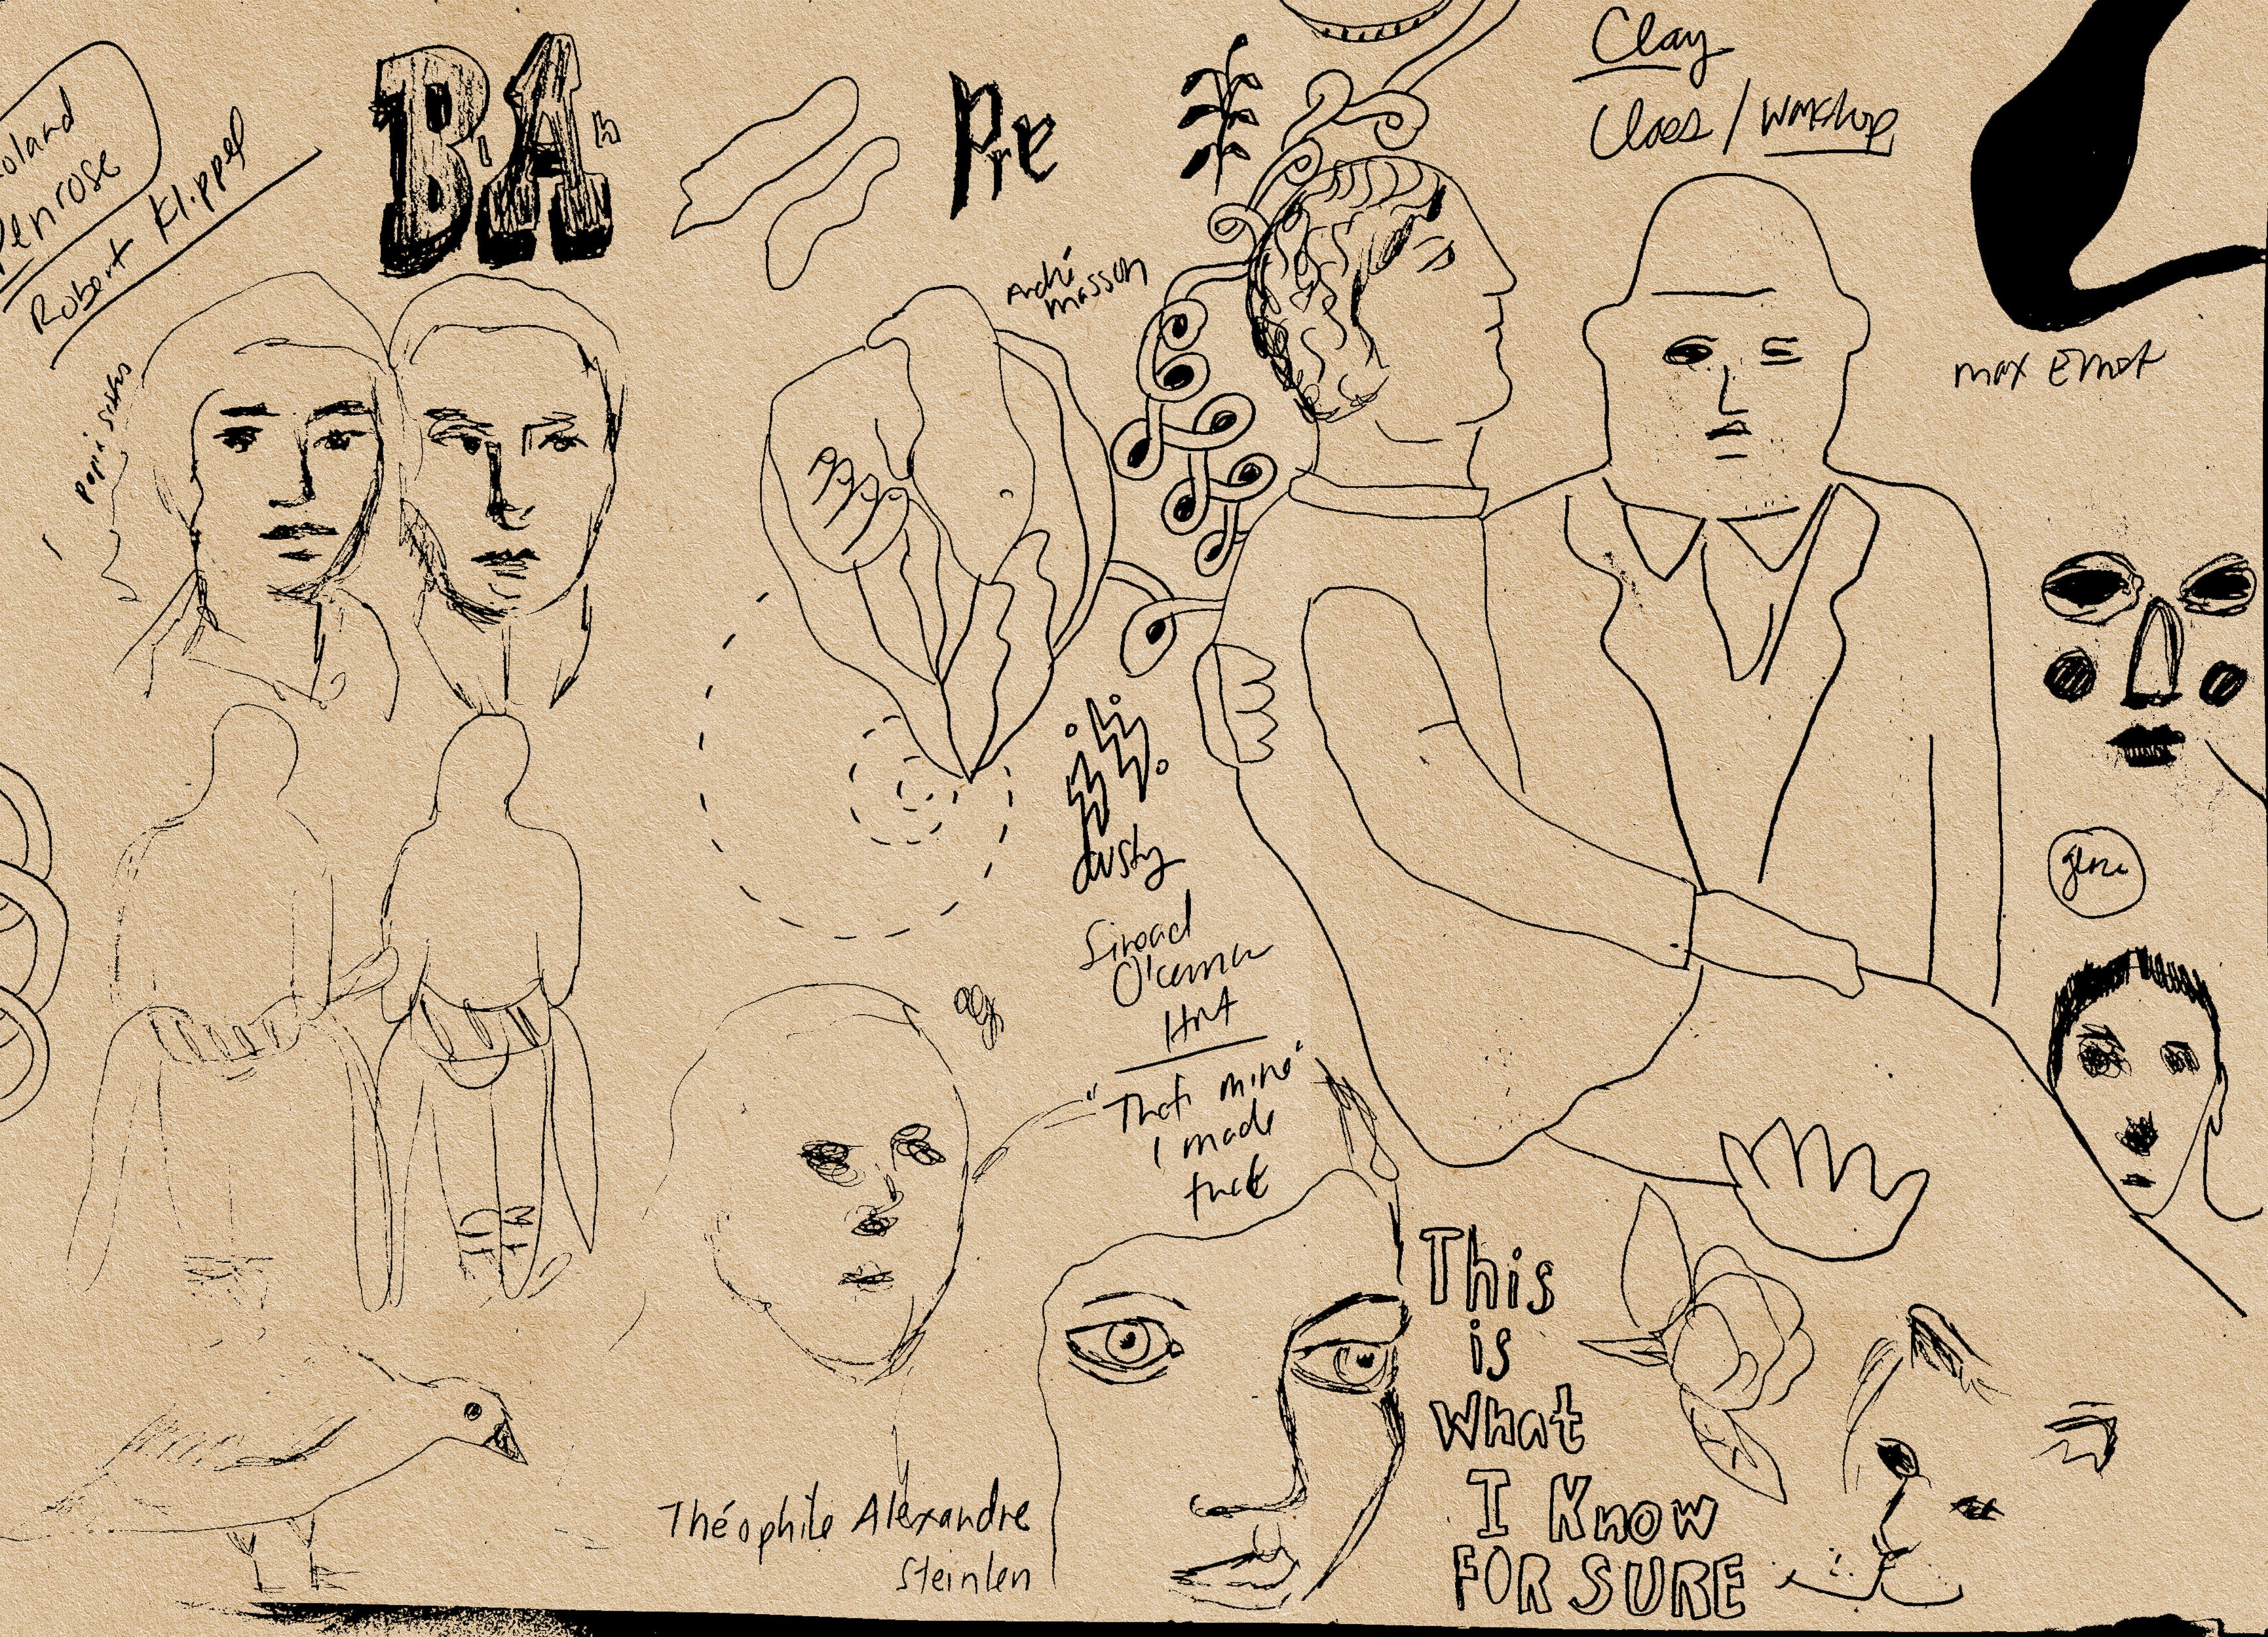 Roland
Penrose
Robert Klippel
BAh
Pre
Clay
Class / Workshop
André
masson
max Ernst
dusty
O'connor
"That's mine"
I made
that
Théophile Alexandre
Steinlen
This
is
what
I Know
FOR SURE